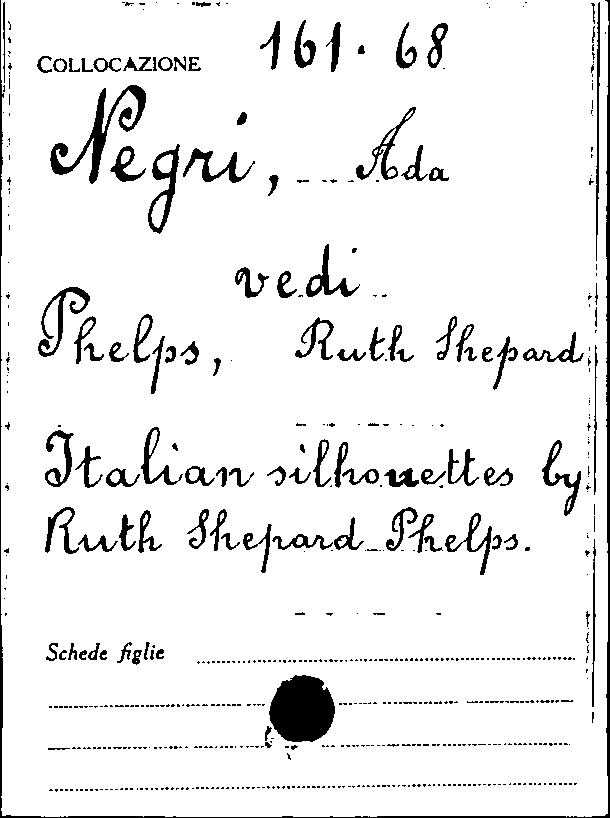 COLLOCAZIONE 161. 68
Negri, Ada
vedi
Phelps, Ruth Shepard
Italian silhouettes by
Ruth Shepard Phelps.
Schede figlie